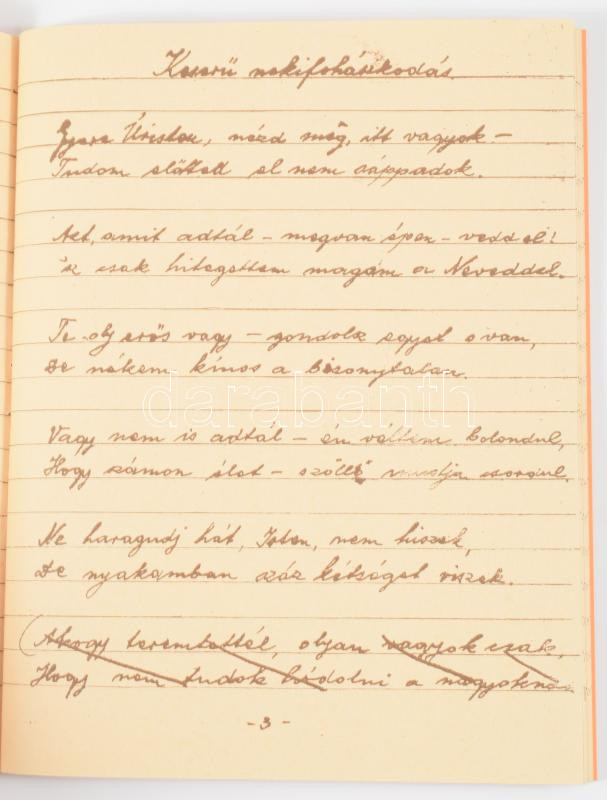 Keserű nekifohászkodás
Gyere Úristen, nézd meg, itt vagyok –
Tudom előtted el nem záppadok.
Azt, amit adtál – megvan épen – vedd el!
's csak hitegettem magam a Neveddel.
Te oly erős vagy – gondolsz egyet s van,
De nékem kínos a bizonytalan.
darabanth
Vagy nem is adtál – én véltem bolondul,
Hogy számon élet – szőllő mustja csordul.
Ne haragudj hát, Isten, nem hiszek,
De nyakamban száz kétséget viszek.
(Ahogy teremtettél, olyan vagyok csak,
Hogy nem tudok hódolni a nagyoknak
- 3 -